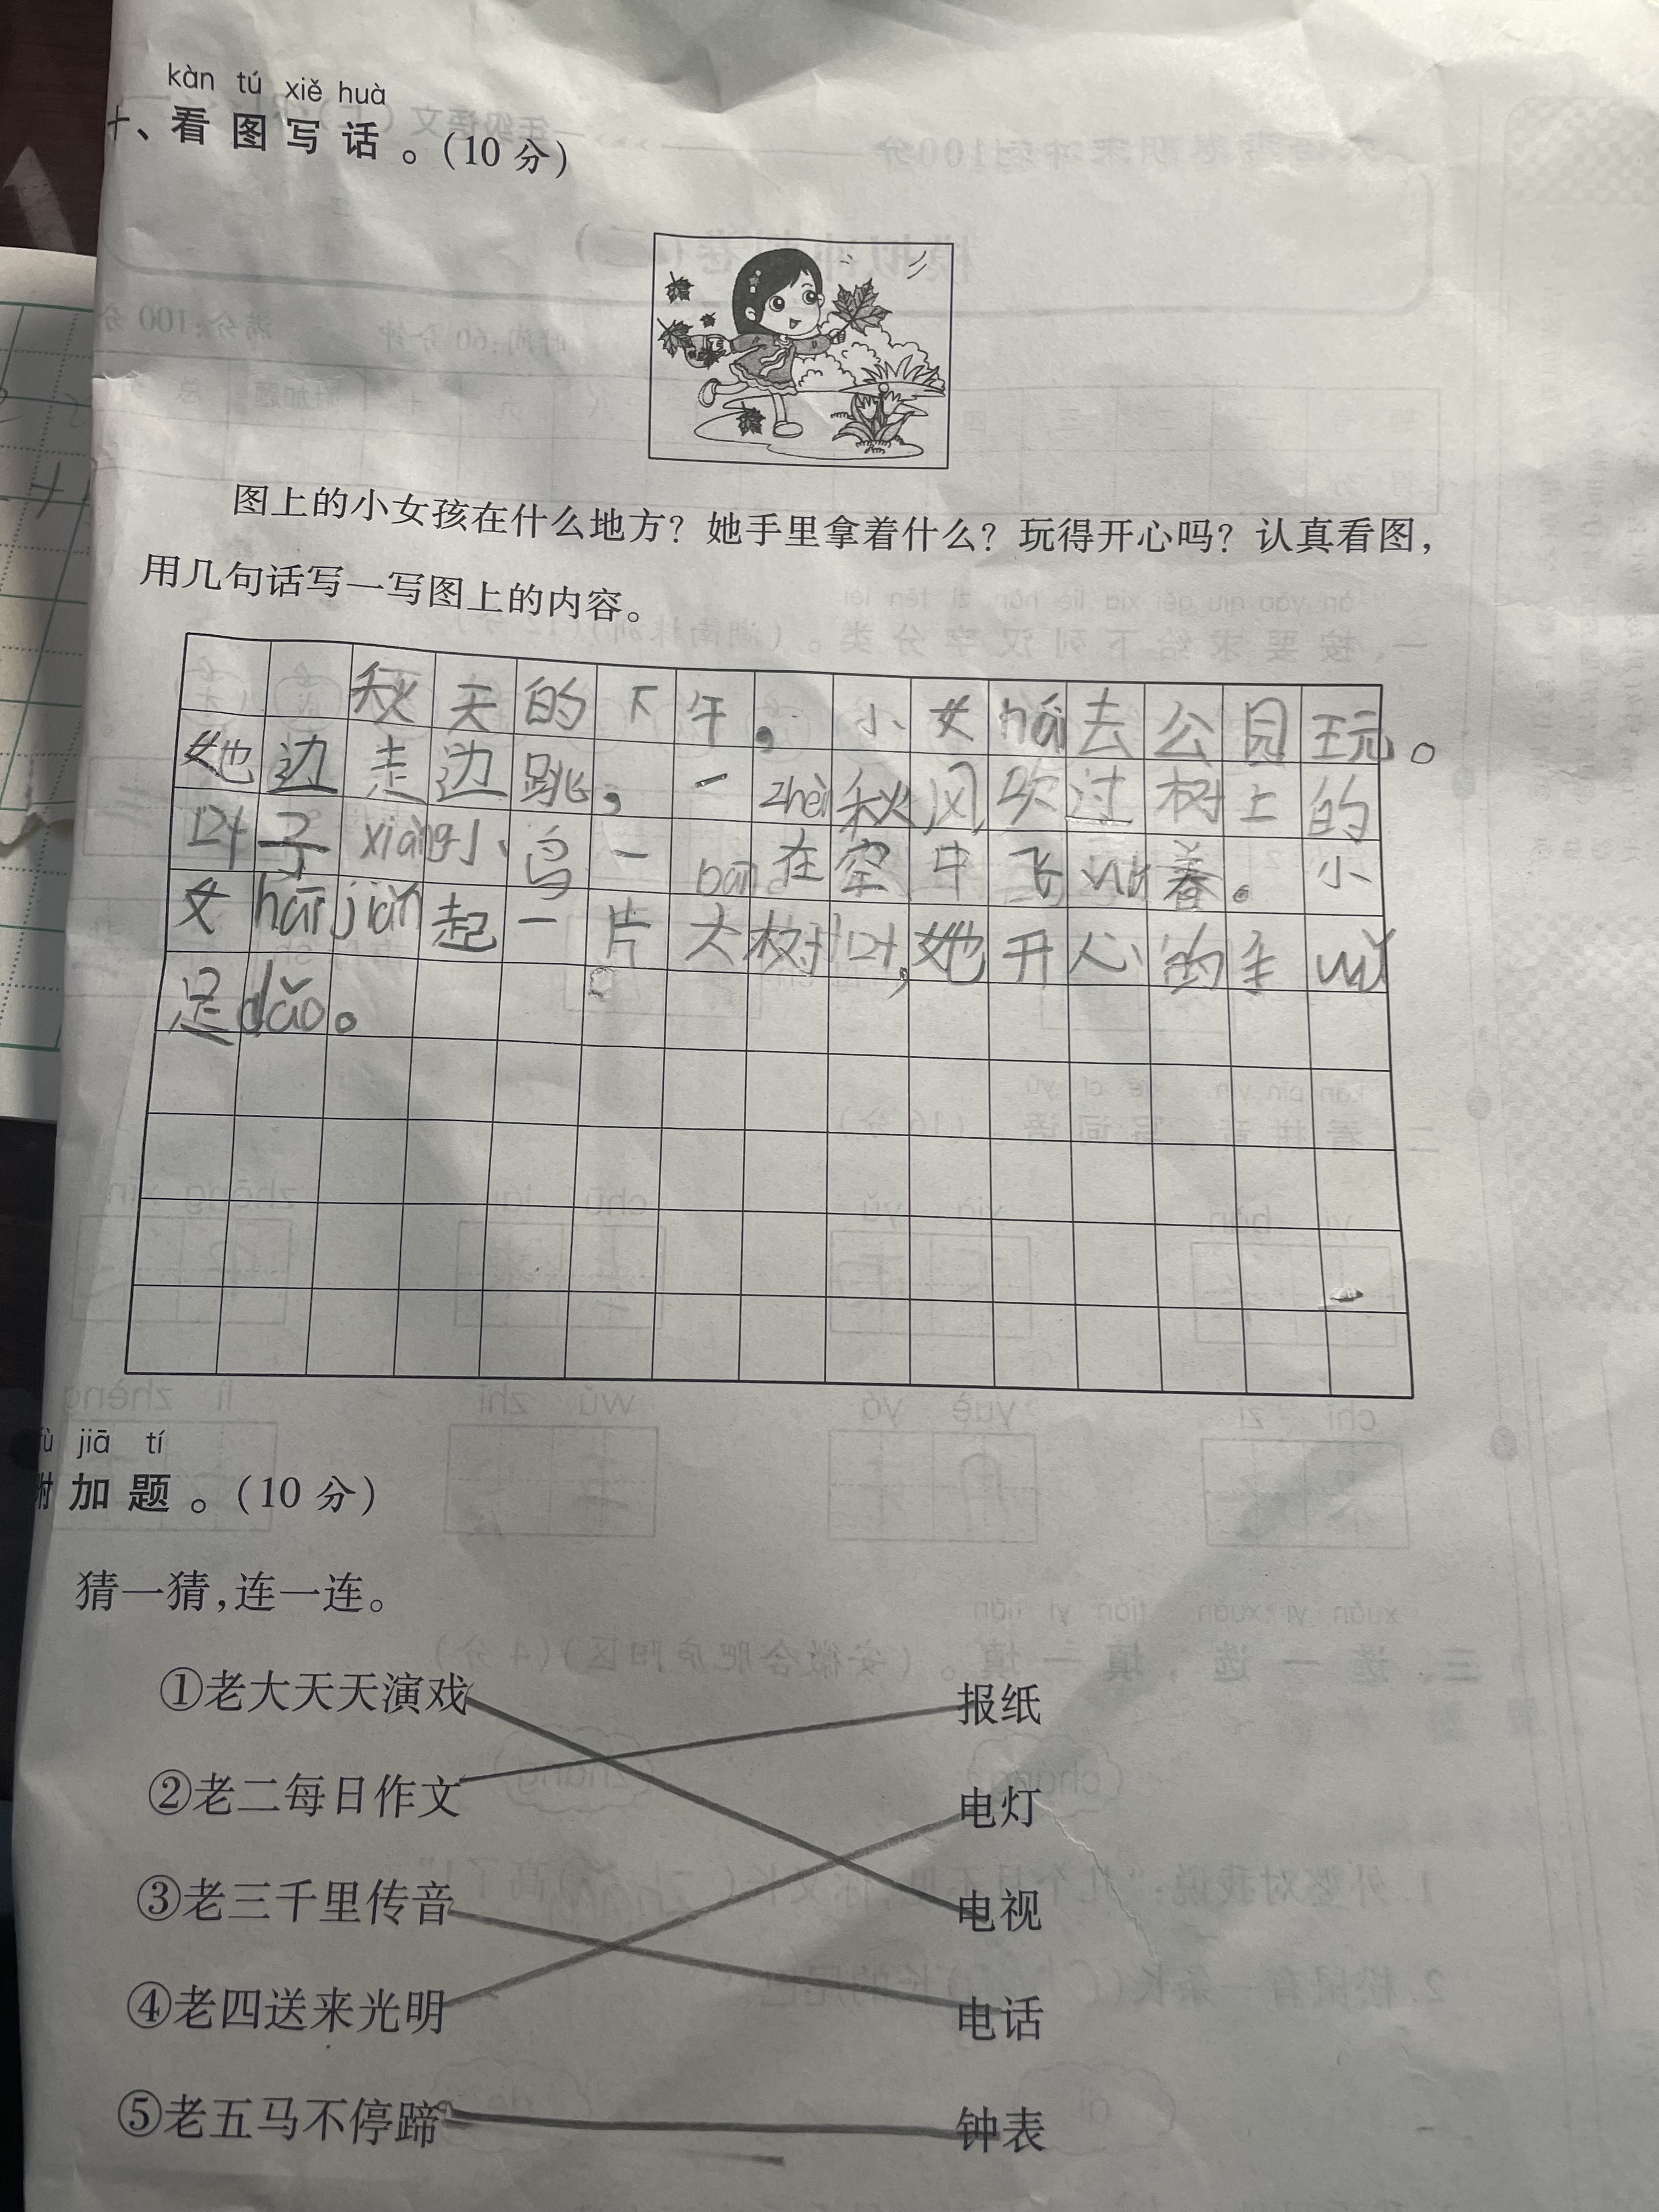 kàn tú xiě huà
十、看图写话。(10分)
图上的小女孩在什么地方？她手里拿着什么？玩得开心吗？认真看图，
用几句话写一写图上的内容。
秋天的下午，小女hái去公园玩。
她边走边跳，一zhèn秋风吹过树上的
叶子xiàng小鸟一bān在空中飞wǔ着。小
女hāi jiǎn起一片大树叶，她开心的手wǔ
足dǎo。
jiā tí
附加题。(10分)
猜一猜，连一连。
①老大天天演戏 报纸
②老二每日作文 电灯
③老三千里传音 电视
④老四送来光明 电话
⑤老五马不停蹄 钟表